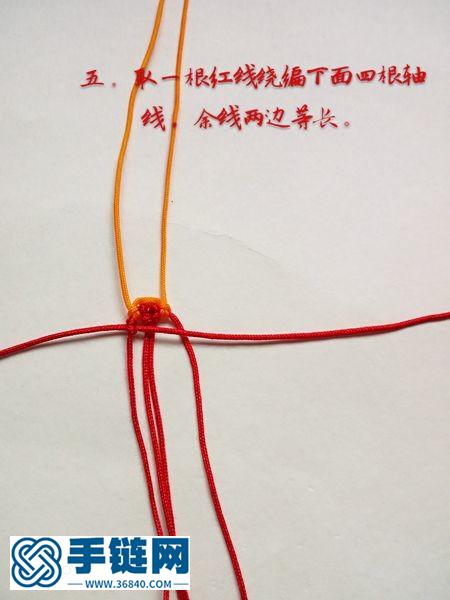 五．取一根红线绕编下面四根轴
线，余线两边等长。
手链网
WWW.36840.COM